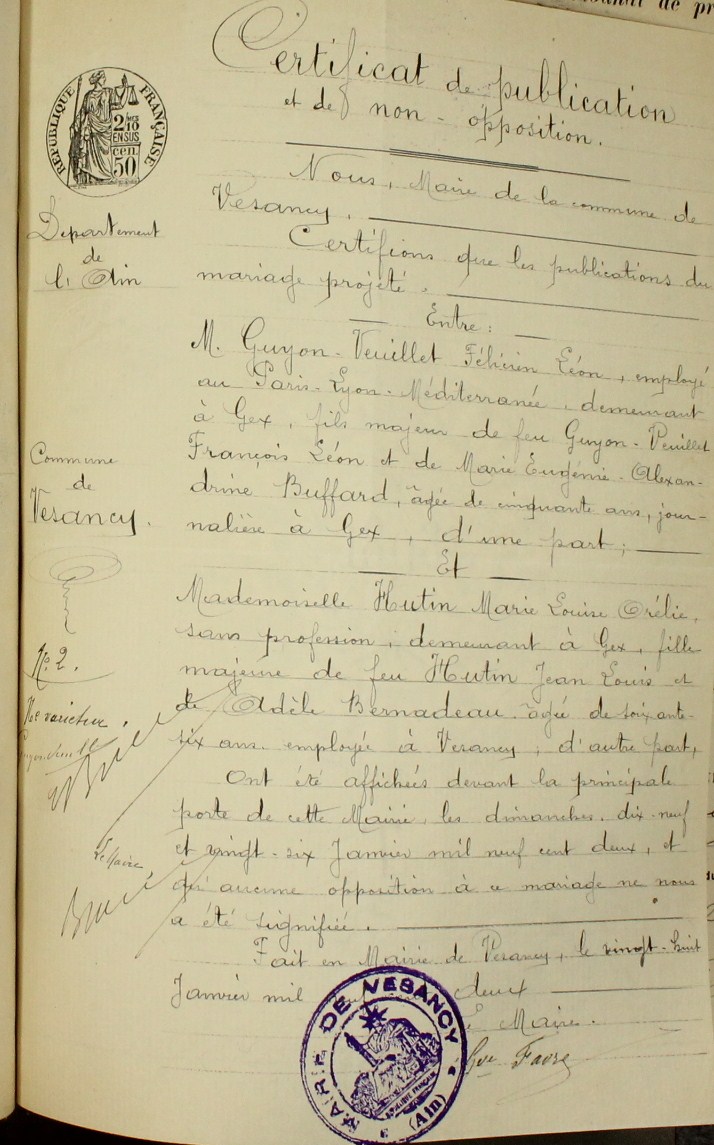 Certificat de publication
et de non-opposition.
RÉPUBLIQUE FRANÇAISE
2/10
EN SUS
cen.
50
Nous, Maire de la commune de
Vesancy,
Département
de
l'Ain
Certifions que les publications du
mariage projeté,
Entre:
M. Guyon-Veuillet Félicien Léon, employé
au Paris-Lyon-Méditerranée, demeurant
à Gex, fils majeur de feu Guyon-Veuillet
François Léon et de Marie Eugénie-Alexan-
drine Buffard, âgée de cinquante ans, jour-
nalière à Gex, d'une part;
Commune
de
Vesancy.
Et
Mademoiselle Hutin Marie Louise Orélie,
sans profession, demeurant à Gex, fille
majeure de feu Hutin Jean Louis et
de Adèle Bernadeau âgée de soixante-
six ans employée à Vesancy, d'autre part,
N° 2.
Ne varietur.
Ont été affichées devant la principale
porte de cette Mairie, les dimanches dix-neuf
et vingt-six Janvier mil neuf cent deux, et
qu'aucune opposition à ce mariage ne nous
a été signifiée.
Le Maire,
Fait en Mairie de Vesancy, le vingt-huit
Janvier mil deux
Le Maire.
Favre
MAIRIE DE VESANCY
(Ain)